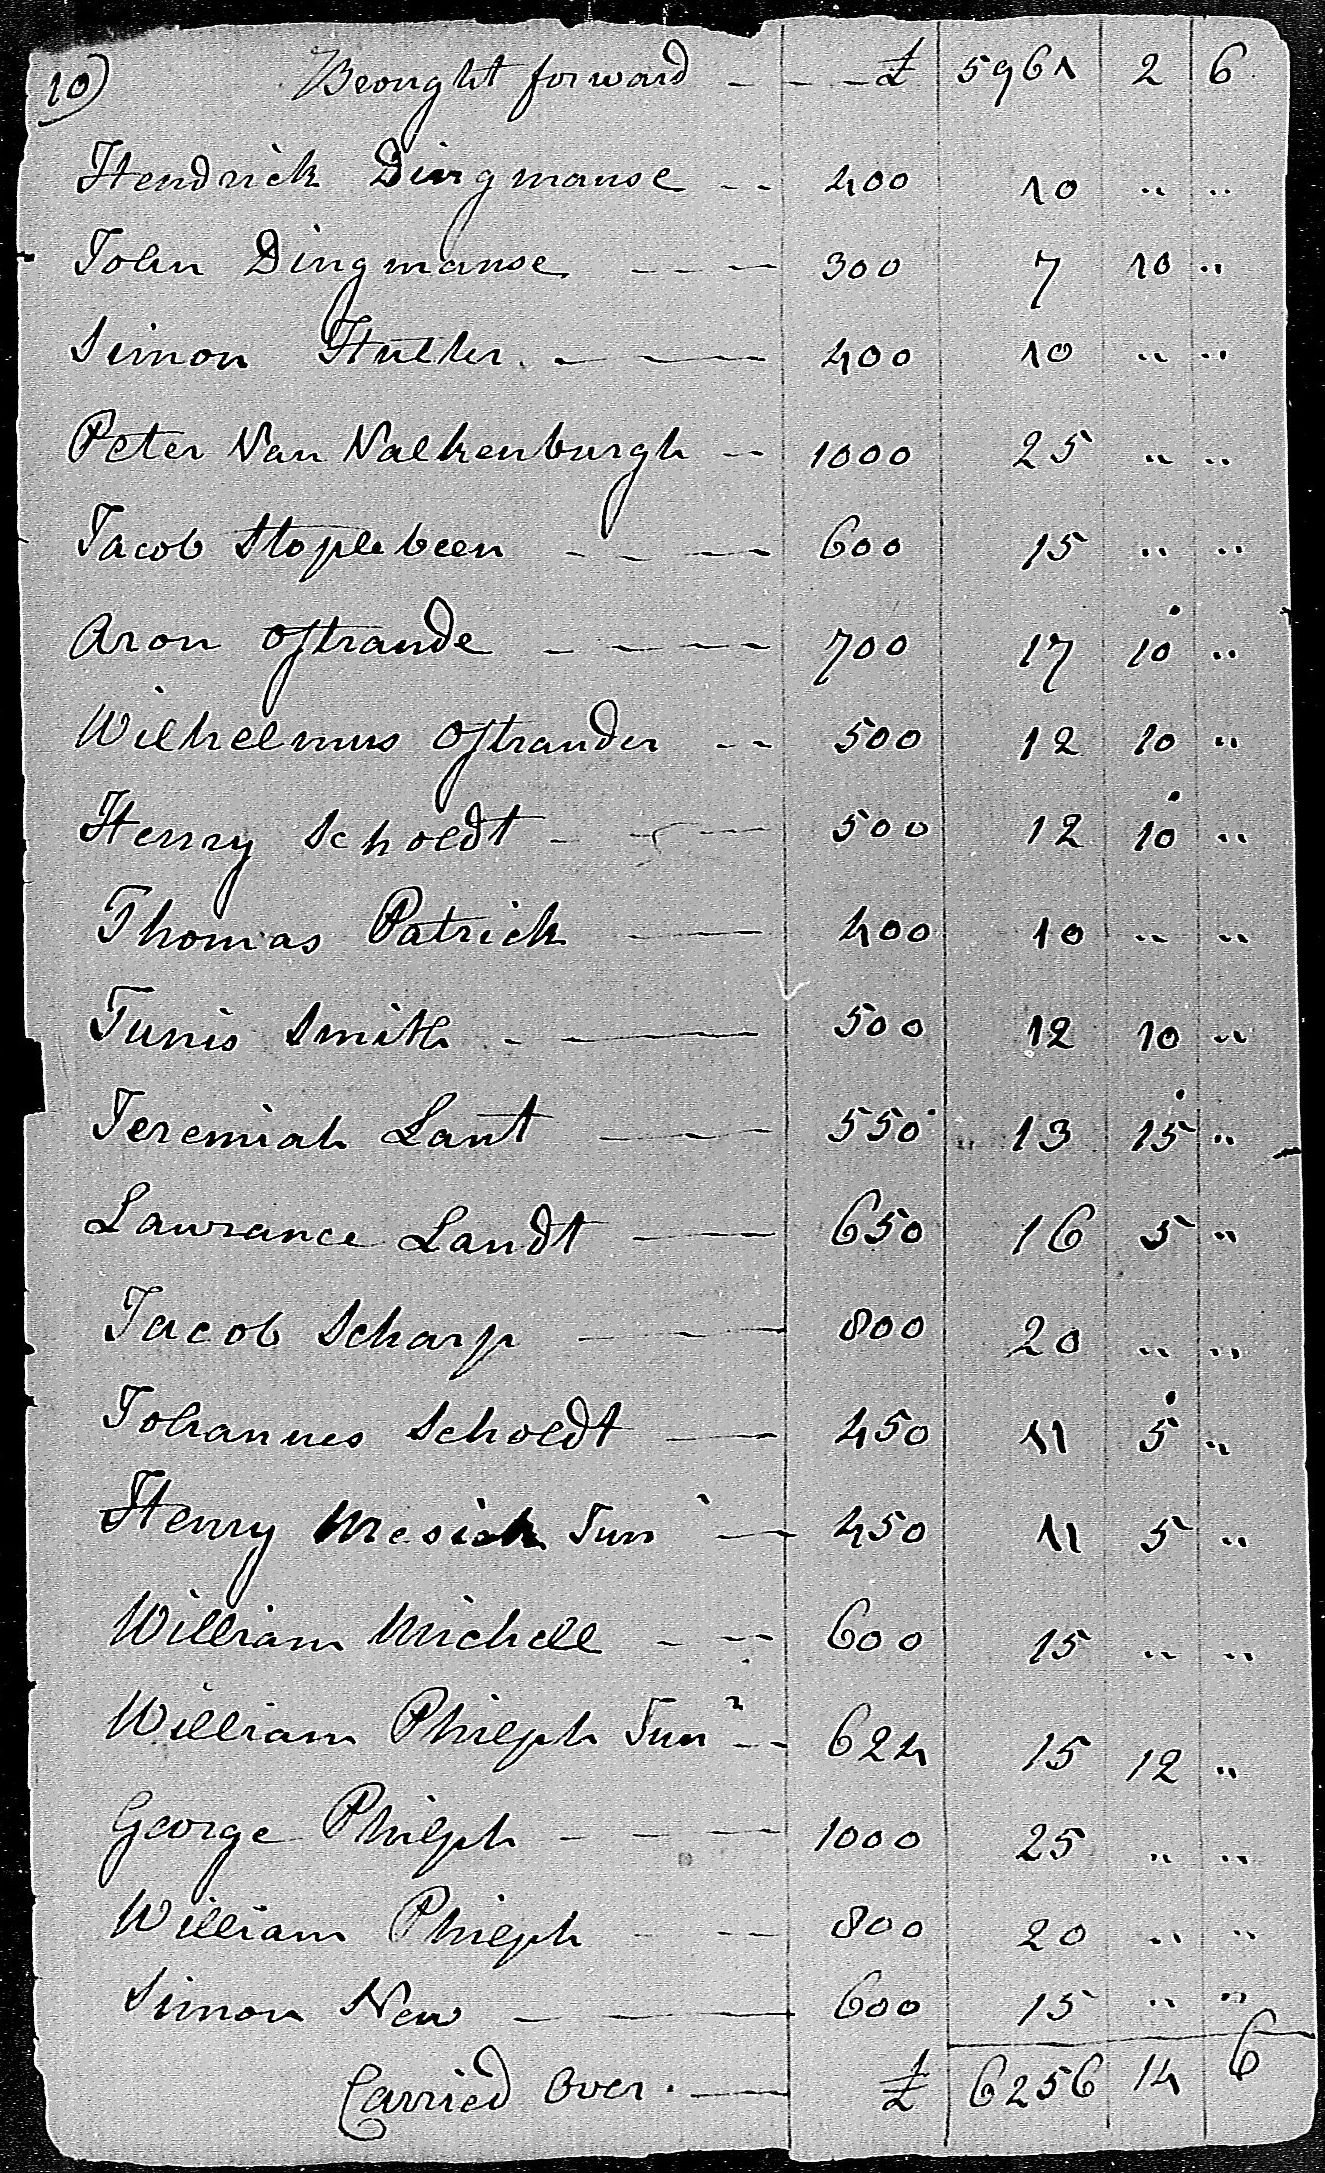 10) Brought forward - - - £ 5961 2 6
Hendrick Dingmanse - - 400 10 " "
John Dingmanse - - - 300 7 10 "
Simon Huller - - 400 10 " "
Peter Van Valkenburgh - - 1000 25 " "
Jacob Stoplebeen - - - - 600 15 " "
Aron Ostrande - - - - 700 17 10 "
Wilhelmus Ostrander - - 500 12 10 "
Henry Scholdt - - - 500 12 10 "
Thomas Patrick - - 400 10 " "
Tunis Smith - - 500 12 10 "
Jeremiah Lant - - - 550 " 13 15 "
Lawrance Landt - - 650 16 5 "
Jacob Scharp - - - 800 20 " "
Johannes Scholdt - - 450 11 5 "
Henry Mesick Jun - - 450 11 5 "
William Michell - - - 600 15 " "
William Philph Junr - - 624 15 12 "
George Philph - - - 1000 25 " "
William Philph - - - 800 20 " "
Simon New - - - 600 15 " "
Carried Over - £ 6256 14 6